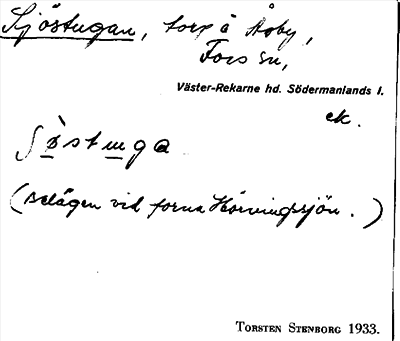 Sjöstugan, torp å Åby,
Fors sn,
Väster-Rekarne hd. Södermanlands l.
ek.
ʃö̀stuga
(Belägen vid forna Hörningssjön.)
TORSTEN STENBORG 1933.